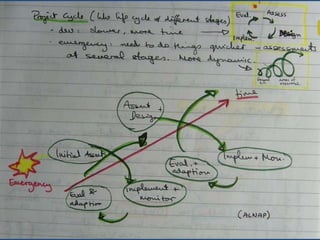 Project Cycle (like life cycle of different stages)
· dev: slower, more time
· emergency: need to do things quicker – assessments
at several stages. More dynamic
Eval.
Assess
Implem.
Design
time
Assess +
Design
Initial Assess
Emergency
Eval &
adaption
Implement +
monitor
Eval. +
adaption
Implem + Mon.
(ALNAP)